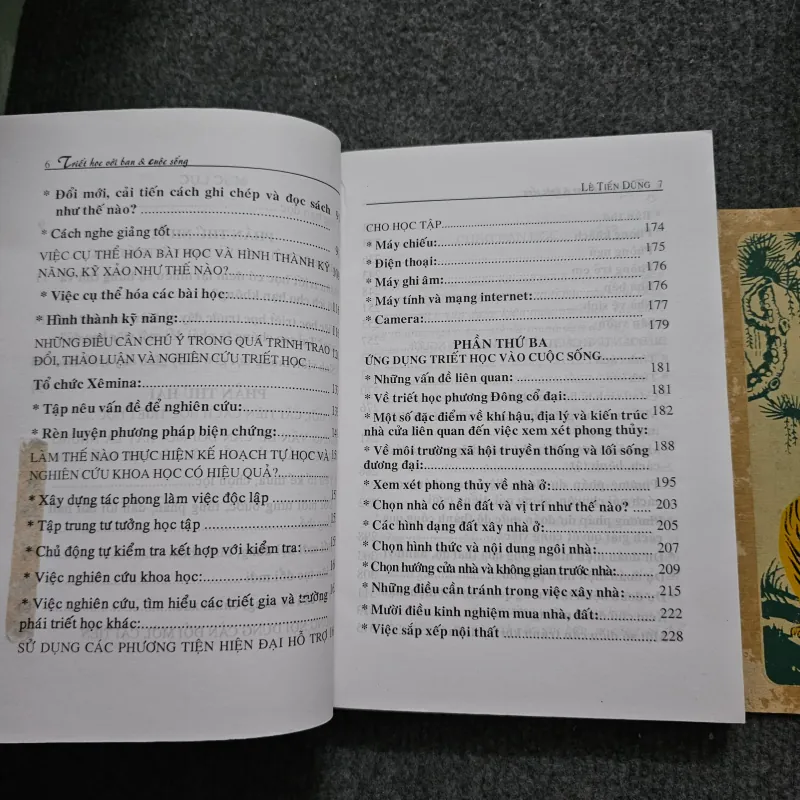 6 Triết học với bạn & cuộc sống
* Đổi mới, cải tiến cách ghi chép và đọc sách
như thế nào?
* Cách nghe giảng tốt
VIỆC CỤ THỂ HÓA BÀI HỌC VÀ HÌNH THÀNH KỸ
NĂNG, KỸ XẢO NHƯ THẾ NÀO?
* Việc cụ thể hóa các bài học:
* Hình thành kỹ năng:
NHỮNG ĐIỀU CẦN CHÚ Ý TRONG QUÁ TRÌNH TRAO
ĐỔI, THẢO LUẬN VÀ NGHIÊN CỨU TRIẾT HỌC
Tổ chức Xêmina:
* Tập nêu vấn đề để nghiên cứu:
* Rèn luyện phương pháp biện chứng:
LÀM THẾ NÀO THỰC HIỆN KẾ HOẠCH TỰ HỌC VÀ
NGHIÊN CỨU KHOA HỌC CÓ HIỆU QUẢ?
* Xây dựng tác phong làm việc độc lập
* Tập trung tư tưởng học tập
* Chủ động tự kiểm tra kết hợp với kiểm tra:
* Việc nghiên cứu khoa học:
* Việc nghiên cứu, tìm hiểu các triết gia và trường
phái triết học khác:
SỬ DỤNG CÁC PHƯƠNG TIỆN HIỆN ĐẠI HỖ TRỢ
LÊ TIẾN DŨNG 7
CHO HỌC TẬP 174
* Máy chiếu: 175
* Điện thoại: 176
* Máy ghi âm: 176
* Máy tính và mạng internet: 177
* Camera: 179
PHẦN THỨ BA
ỨNG DỤNG TRIẾT HỌC VÀO CUỘC SỐNG 181
* Những vấn đề liên quan: 181
* Về triết học phương Đông cổ đại: 182
* Một số đặc điểm về khí hậu, địa lý và kiến trúc
nhà cửa liên quan đến việc xem xét phong thủy: 188
* Về môi trường xã hội truyền thống và lối sống
đương đại: 195
* Xem xét phong thủy về nhà ở:
* Chọn nhà có nền đất và vị trí như thế nào? 203
* Các hình dạng đất xây nhà ở: 205
* Chọn hình thức và nội dung ngôi nhà: 207
* Chọn hướng cửa nhà và không gian trước nhà: 209
* Những điều cần tránh trong việc xây nhà: 215
* Mười điều kinh nghiệm mua nhà, đất: 222
* Việc sắp xếp nội thất 228